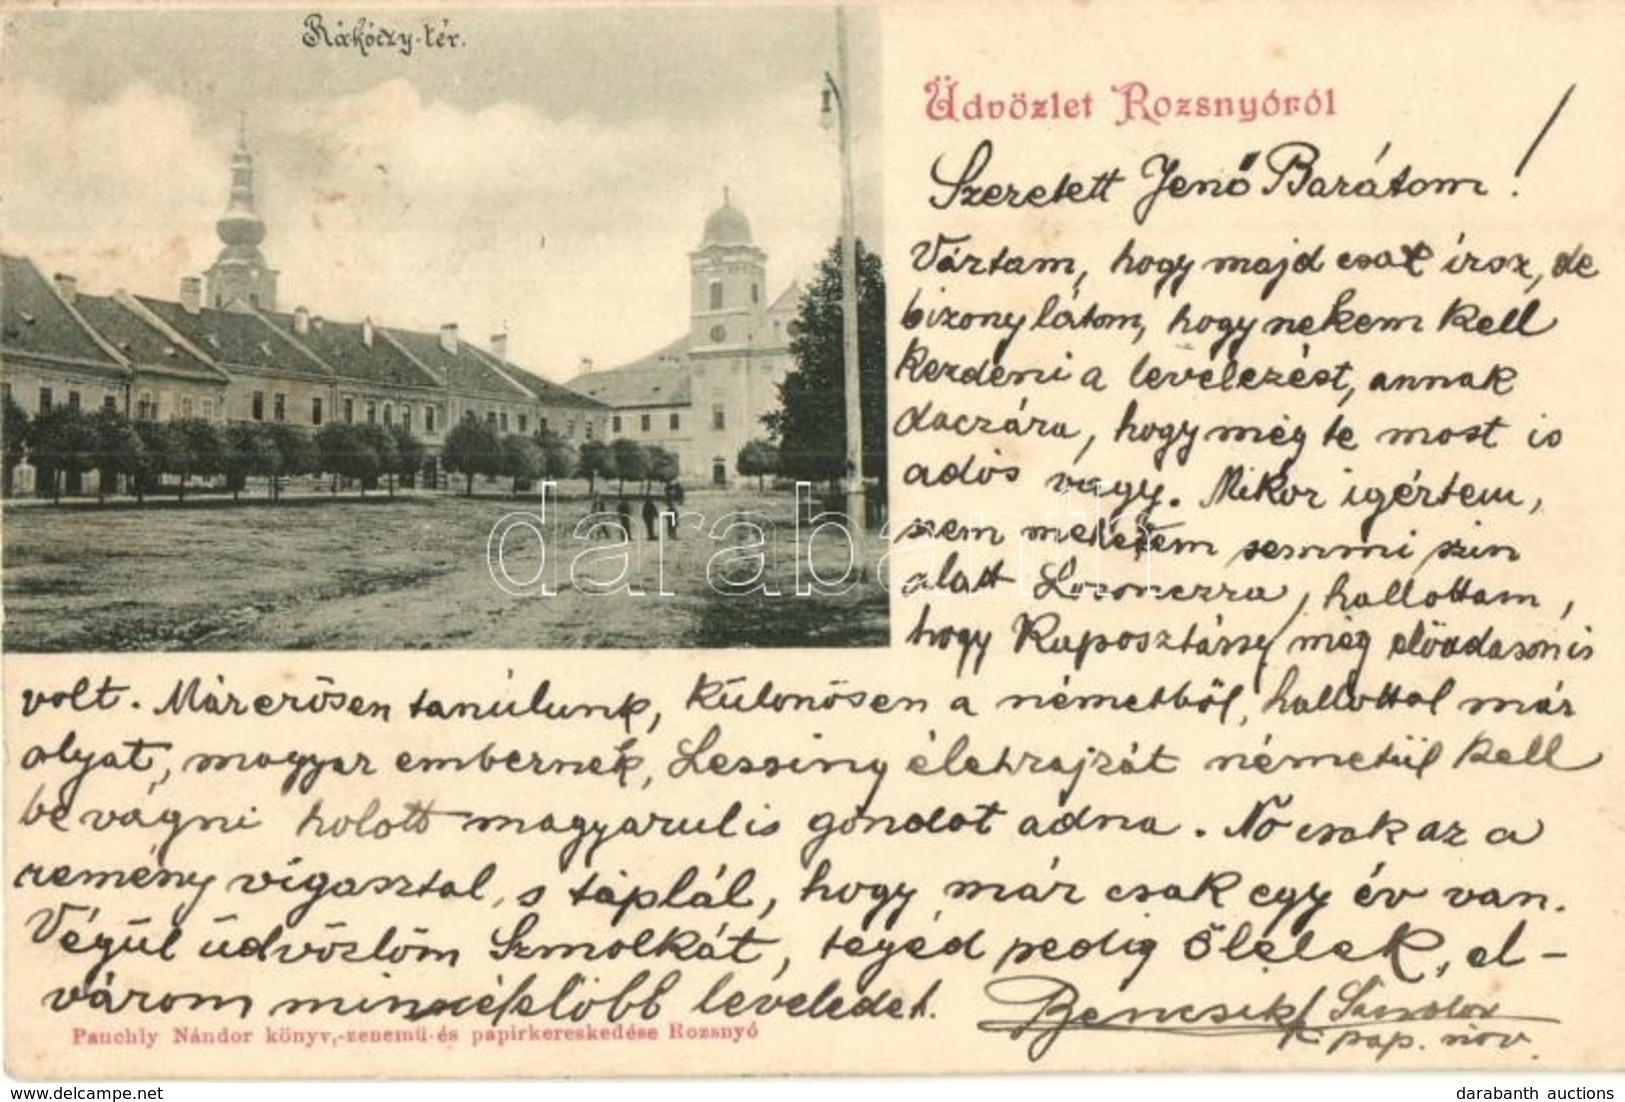 Rákóczy-tér.
Üdvözlet Rozsnyóról
Szeretett Jenő Barátom!
Vártam, hogy majd csak írsz, de
bizony látom, hogy nekem kell
kezdeni a levelezést, annak
daczára, hogy még te most is
adós vagy. Mikor igértem,
nem mehetem semmi szin
alatt Losonczra, hallottam,
hogy még előadáson is
volt. Már erősen tanúlunk, különösen a németből, hallottál már
olyat, magyar embernek, Lessing életrajzát németűl kell
be vágni holott magyarul is gondot adna. No csak az a
remény vigasztal, s táplál, hogy már csak egy év van.
Végűl üdvözlöm Szmolkát, tegéd pedig ölelek, el-
várom minnélelőbb leveledet.
Bencsik Sándor
pap. növ.
Pauchly Nándor könyv,-zenemű-és papirkereskedése Rozsnyó
darabanth
darabanth auctions